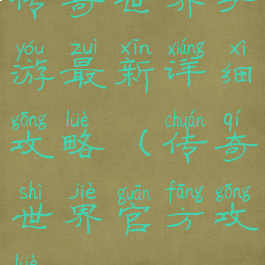 传奇世界手
yóu zuì xīn xiáng xì
游最新详细
gōng lüè chuán qí
攻略（传奇
shì jiè guān fāng gōng
世界官方攻
lüè